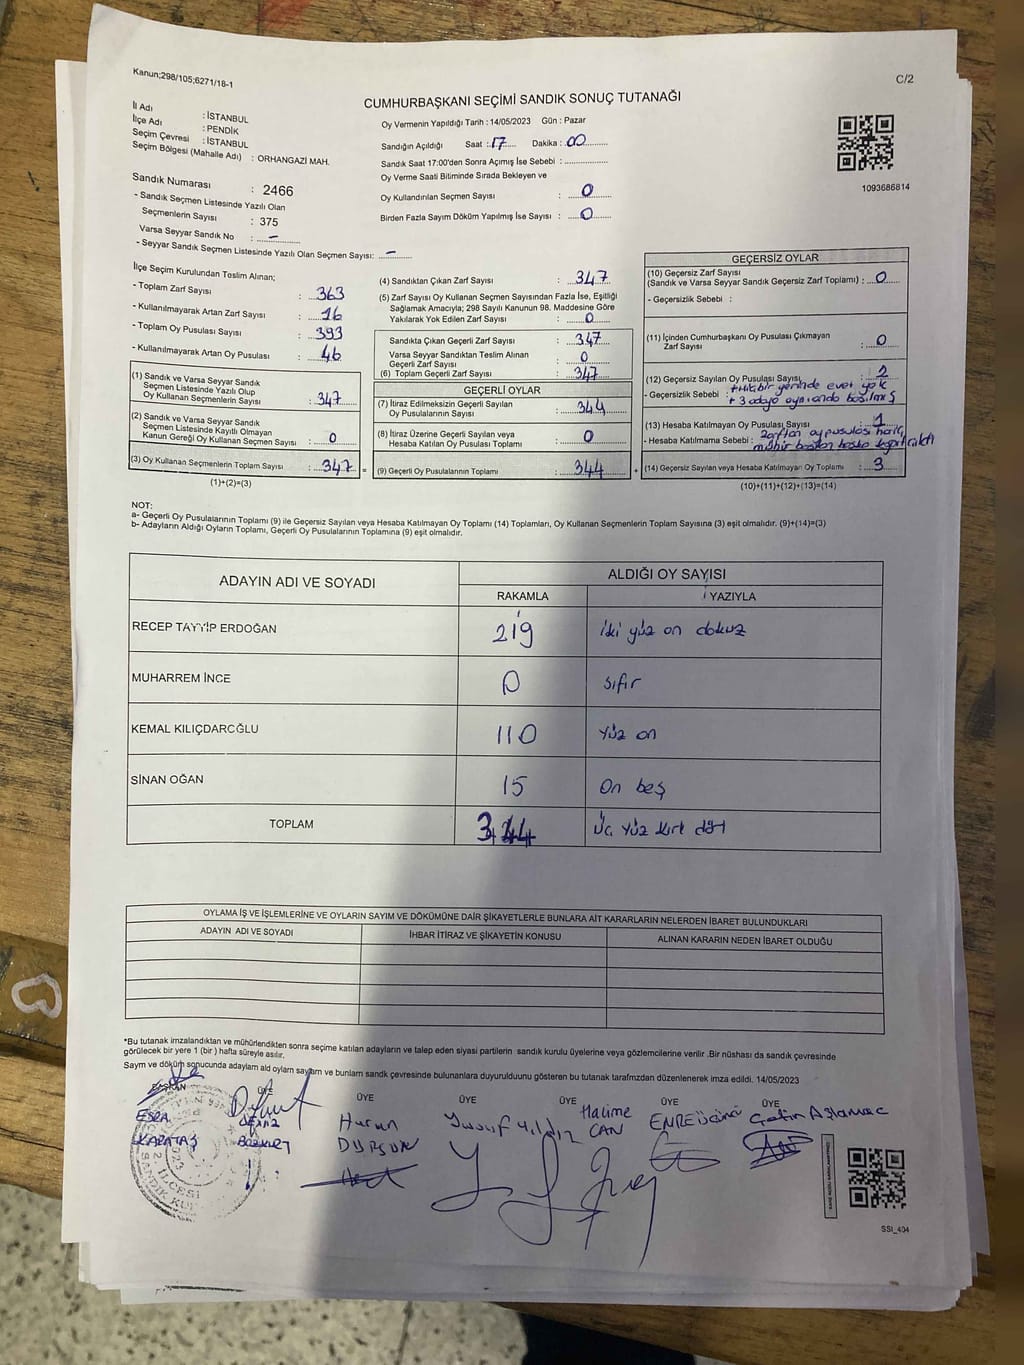 Kanun;298/105;6271/18-1
C/2
CUMHURBAŞKANI SEÇİMİ SANDIK SONUÇ TUTANAĞI
İl Adı : İSTANBUL
İlçe Adı : PENDİK
Seçim Çevresi : İSTANBUL
Seçim Bölgesi (Mahalle Adı) : ORHANGAZİ MAH.
Sandık Numarası : 2466
- Sandık Seçmen Listesinde Yazılı Olan
Seçmenlerin Sayısı : 375
Varsa Seyyar Sandık No : -
- Seyyar Sandık Seçmen Listesinde Yazılı Olan Seçmen Sayısı: -
Oy Vermenin Yapıldığı Tarih : 14/05/2023 Gün : Pazar
Sandığın Açıldığı Saat : 17 Dakika : 00
Sandık Saat 17:00'den Sonra Açımış İse Sebebi :
Oy Verme Saati Bitiminde Sırada Bekleyen ve
Oy Kullandırılan Seçmen Sayısı : 0
Birden Fazla Sayım Döküm Yapılmış İse Sayısı : 0
1093686814
İlçe Seçim Kurulundan Teslim Alınan;
- Toplam Zarf Sayısı : 363
- Kullanılmayarak Artan Zarf Sayısı : 16
- Toplam Oy Pusulası Sayısı : 393
- Kullanılmayarak Artan Oy Pusulası : 46
(1) Sandık ve Varsa Seyyar Sandık
Seçmen Listesinde Yazılı Olup
Oy Kullanan Seçmenlerin Sayısı : 347
(2) Sandık ve Varsa Seyyar Sandık
Seçmen Listesinde Kayıtlı Olmayan
Kanun Gereği Oy Kullanan Seçmen Sayısı : 0
(3) Oy Kullanan Seçmenlerin Toplam Sayısı : 347 =
(1)+(2)=(3)
(4) Sandıktan Çıkan Zarf Sayısı : 347
(5) Zarf Sayısı Oy Kullanan Seçmen Sayısından Fazla İse, Eşitliği
Sağlamak Amacıyla; 298 Sayılı Kanunun 98. Maddesine Göre
Yakılarak Yok Edilen Zarf Sayısı : 0
Sandıkta Çıkan Geçerli Zarf Sayısı : 347
Varsa Seyyar Sandıktan Teslim Alınan
Geçerli Zarf Sayısı : 0
(6) Toplam Geçerli Zarf Sayısı : 347
GEÇERLİ OYLAR
(7) İtiraz Edilmeksizin Geçerli Sayılan
Oy Pusulalarının Sayısı : 344
(8) İtiraz Üzerine Geçerli Sayılan veya
Hesaba Katılan Oy Pusulası Toplamı : 0
(9) Geçerli Oy Pusulalarının Toplamı : 344 +
GEÇERSİZ OYLAR
(10) Geçersiz Zarf Sayısı
(Sandık ve Varsa Seyyar Sandık Geçersiz Zarf Toplamı) : 0
- Geçersizlik Sebebi :
(11) İçinden Cumhurbaşkanı Oy Pusulası Çıkmayan
Zarf Sayısı : 0
(12) Geçersiz Sayılan Oy Pusulası Sayısı : 2
- Geçersizlik Sebebi : yerinde evet yok
+ 3 adaya aynı anda basılmış
(13) Hesaba Katılmayan Oy Pusulası Sayısı : 1
- Hesaba Katılmama Sebebi : Zarftan oy pusulası hariç,
(14) Geçersiz Sayılan veya Hesaba Katılmayan Oy Toplamı : 3
(10)+(11)+(12)+(13)=(14)
NOT:
a- Geçerli Oy Pusulalarının Toplamı (9) ile Geçersiz Sayılan veya Hesaba Katılmayan Oy Toplamı (14) Toplamları, Oy Kullanan Seçmenlerin Toplam Sayısına (3) eşit olmalıdır. (9)+(14)=(3)
b- Adayların Aldığı Oyların Toplamı, Geçerli Oy Pusulalarının Toplamına (9) eşit olmalıdır.
ADAYIN ADI VE SOYADI ALDIĞI OY SAYISI
RAKAMLA YAZIYLA
RECEP TAYYİP ERDOĞAN 219 iki yüz on dokuz
MUHARREM İNCE 0 sıfır
KEMAL KILIÇDAROĞLU 110 Yüz on
SİNAN OĞAN 15 On beş
TOPLAM 344 Üç yüz kırk dört
OYLAMA İŞ VE İŞLEMLERİNE VE OYLARIN SAYIM VE DÖKÜMÜNE DAİR ŞİKAYETLERLE BUNLARA AİT KARARLARIN NELERDEN İBARET BULUNDUKLARI
ADAYIN ADI VE SOYADI İHBAR İTİRAZ VE ŞİKAYETİN KONUSU ALINAN KARARIN NEDEN İBARET OLDUĞU
*Bu tutanak imzalandıktan ve mühürlendikten sonra seçime katılan adayların ve talep eden siyasi partilerin sandık kurulu üyelerine veya gözlemcilerine verilir .Bir nüshası da sandık çevresinde
görülecek bir yere 1 (bir ) hafta süreyle asılır.
Sayım ve döküm sonucunda adayların aldı oyların sayısını ve bunların sandk çevresinde bulunanlara duyurulduunu gösteren bu tutanak tarafmzdan düzenlenerek imza edildi. 14/05/2023
BAŞKAN ÜYE ÜYE ÜYE ÜYE ÜYE ÜYE
ESRA KARATAŞ
DENİZ BOZKURT
Harun DURSUN
Yusuf Yıldız
Halime CAN
Çetin Aşlamacı
SSI_404